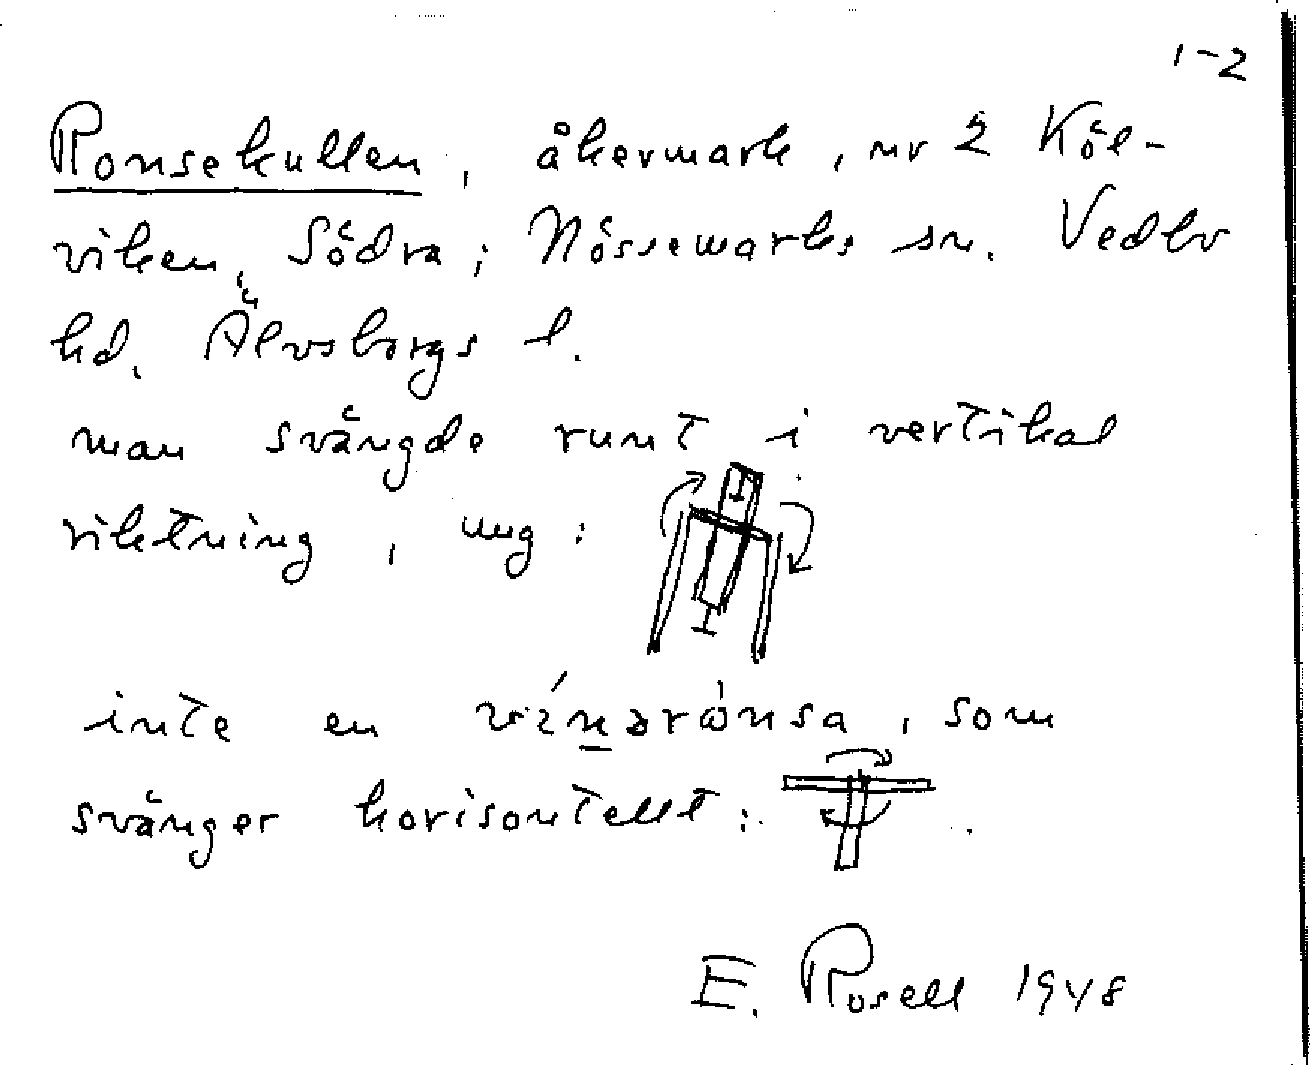 1-2
Ronsekullen, åkermark, nr 2 Köl-
viken, Södra; Nössemarks sn. Vedbo
hd. Älvsborgs l.
man svängde runt i vertikal
riktning, ung:
inte en vínərònsa, som
svänger horisontellt:
E. Rosell 1948